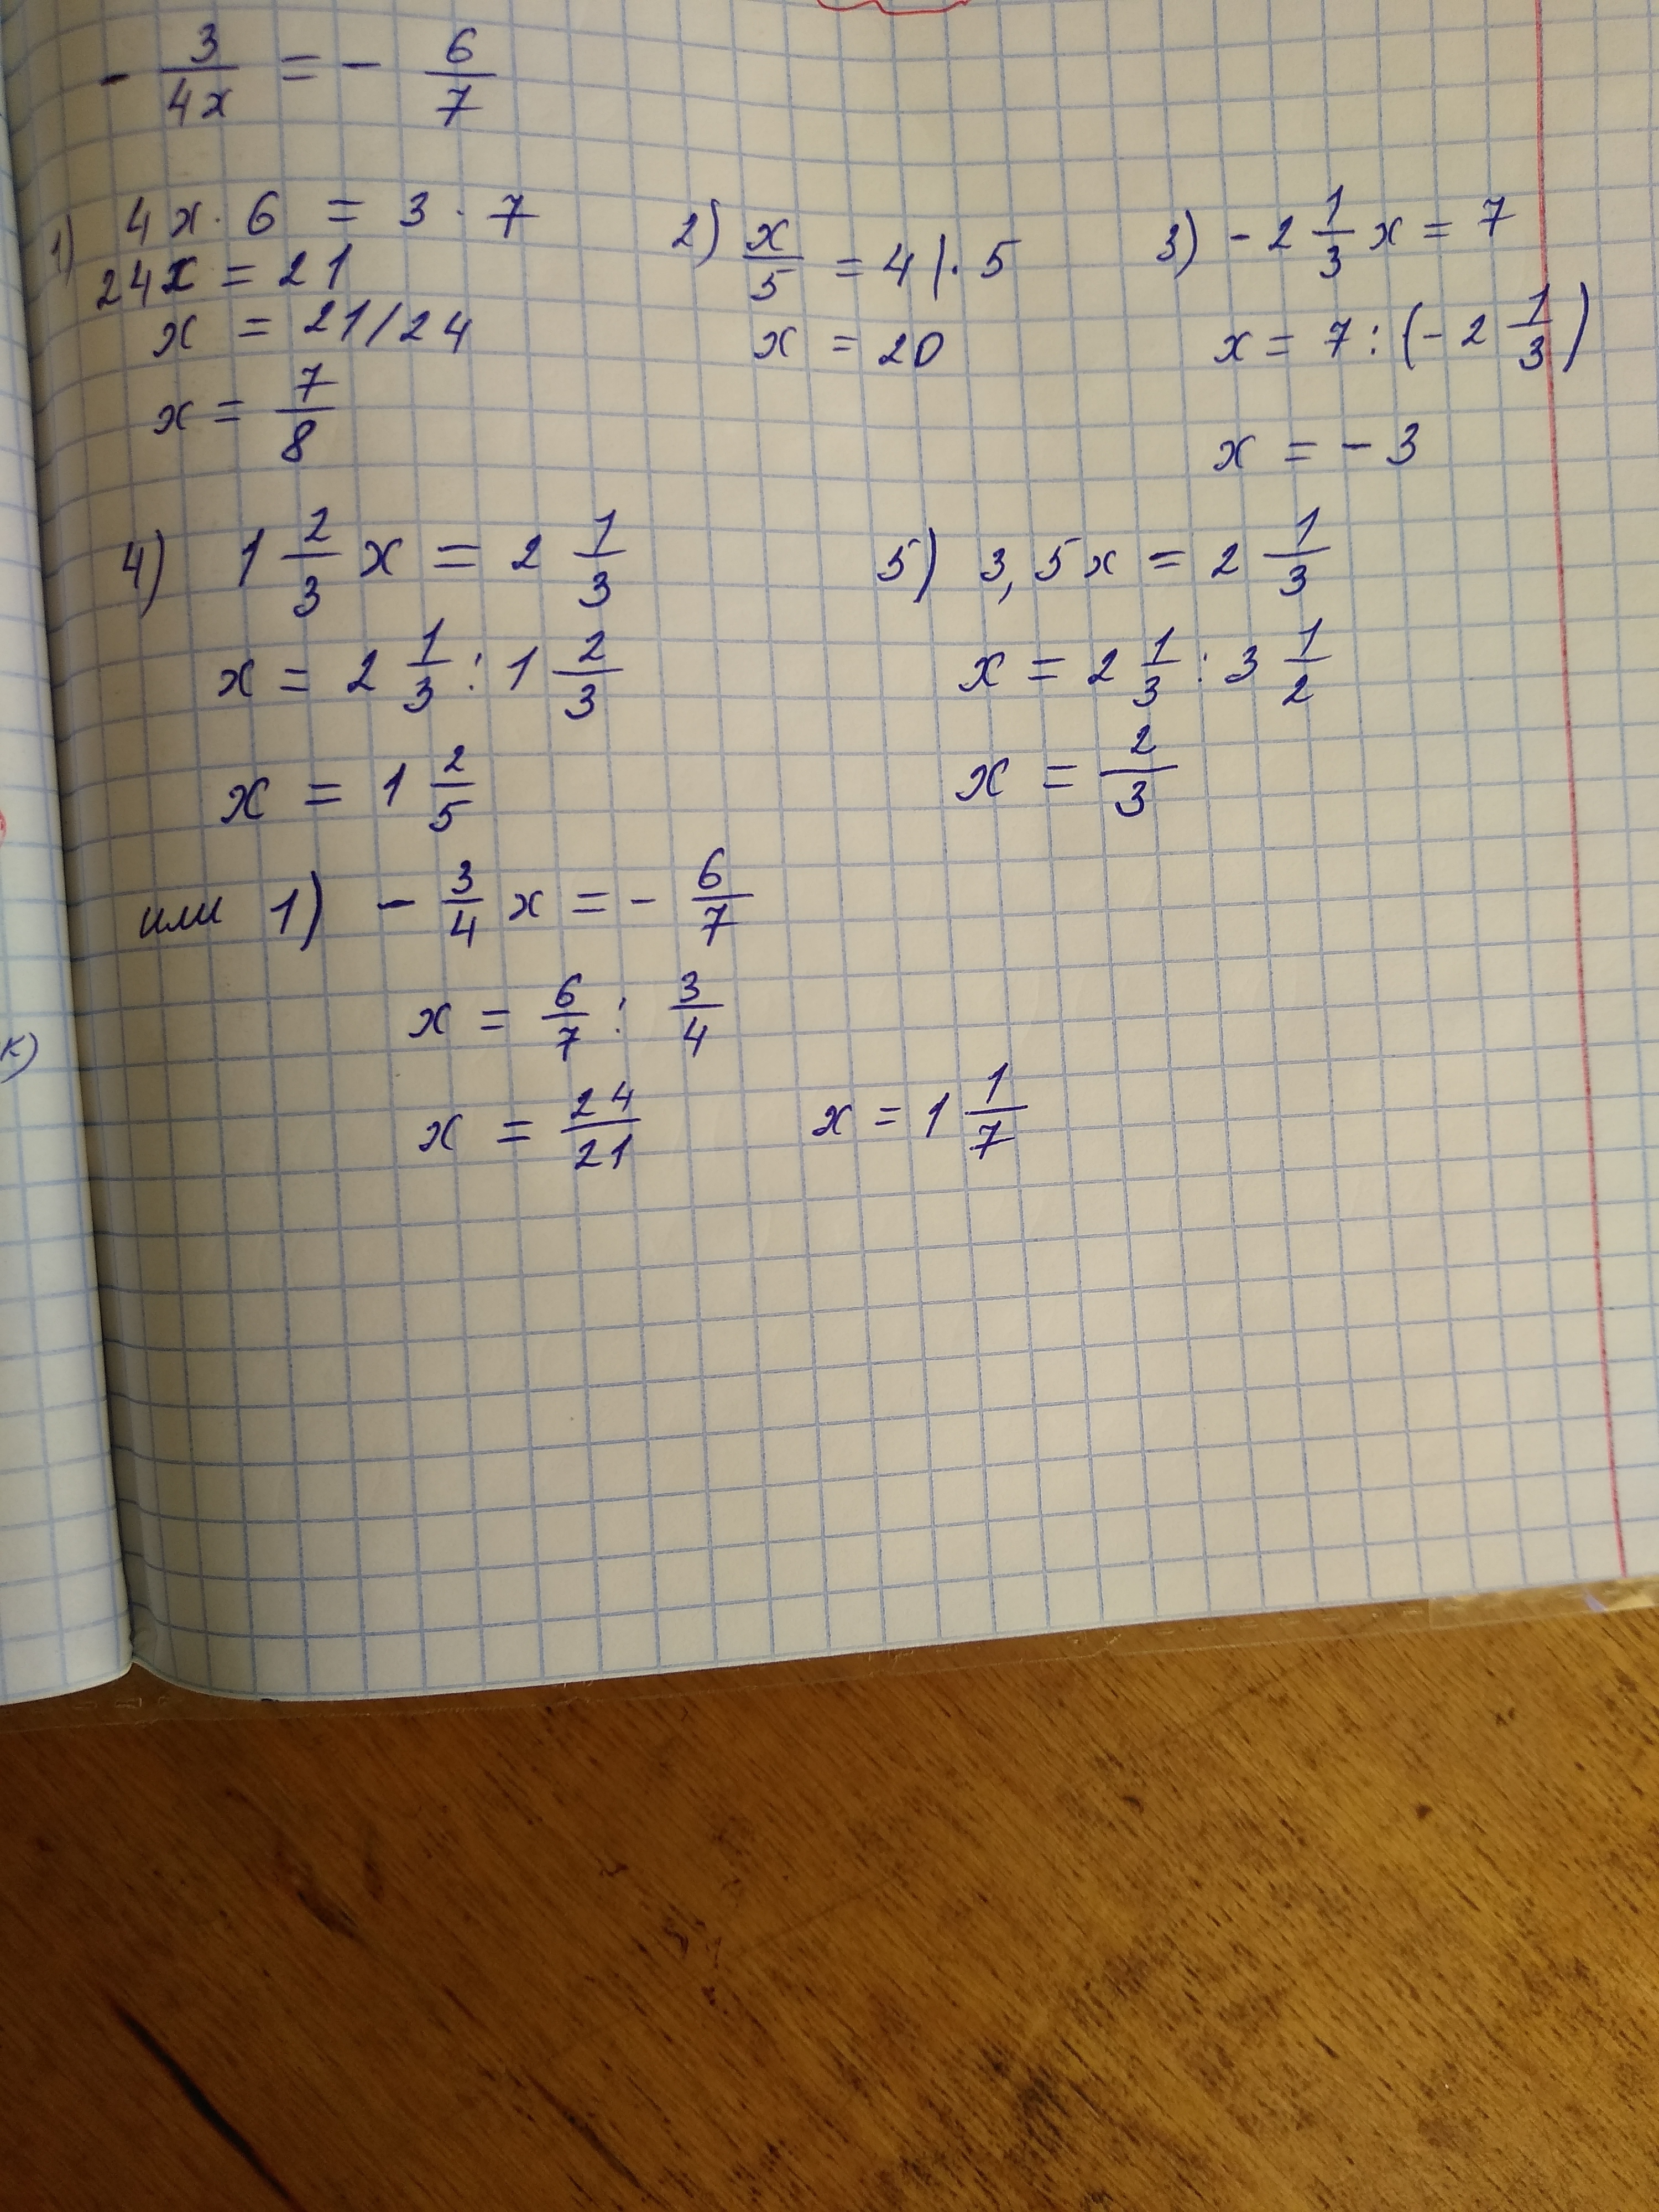 - 3/4x = - 6/7
1) 4x · 6 = 3 · 7
24x = 21
x = 21/24
x = 7/8
2) x/5 = 4 | · 5
x = 20
3) - 2 1/3 x = 7
x = 7 : (- 2 1/3)
x = - 3
4) 1 2/3 x = 2 1/3
x = 2 1/3 : 1 2/3
x = 1 2/5
5) 3,5x = 2 1/3
x = 2 1/3 : 3 1/2
x = 2/3
или 1) - 3/4 x = - 6/7
x = 6/7 : 3/4
x = 24/21 x = 1 1/7
к)